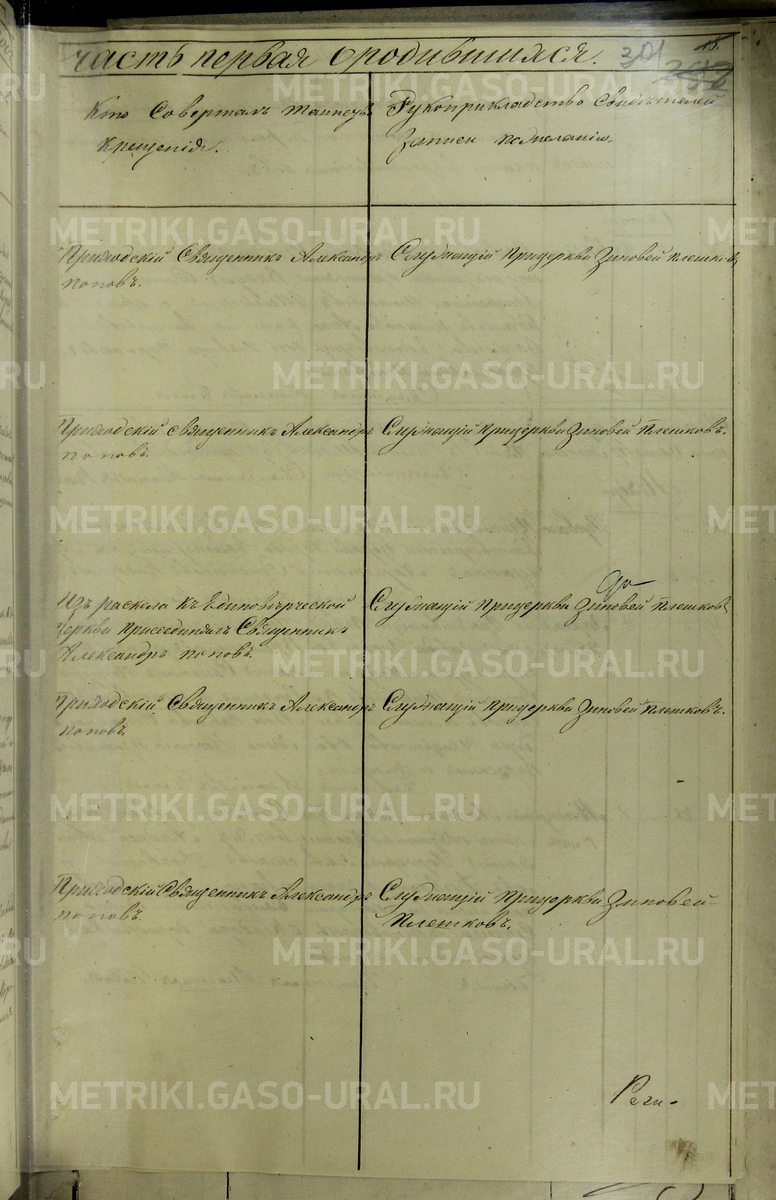 часть первая о родившихся.
301
15.
Кто Совершалъ Таинство
крещенія.
Рукоприкладство Свидѣтелей
записи по желанію.
Приходскій Священникъ Александръ
Поповъ.
Служащій при церкви Зиновей Плешковъ
Приходскій священникъ Александръ
Поповъ.
Служащій при церкви Зиновей Плешковъ.
Изъ раскола къ Единовѣрческой
Церкви присоединялъ Священникъ
Александръ Поповъ.
Служащій при церкви Зиновей Плешковъ
Приходскій Священникъ Александръ
Поповъ.
Служащій при церкви Зиновей Плешковъ.
Приходскій Священникъ Александръ
Поповъ.
Служащій при церкви Зиновей
Плешковъ.
METRIKI.GASO-URAL.RU